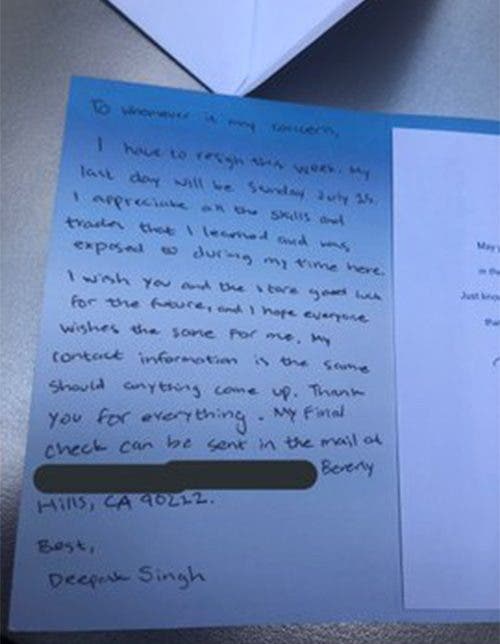 To whomever it may concern,
I have to resign this week. My
last day will be Sunday July 25.
I appreciate all the skills and
trades that I learned and was
exposed to during my time here.
I wish you and the store good luck
for the future, and I hope everyone
wishes the same for me. My
contact information is the same
should anything come up. Thank
you for everything. My final
check can be sent in the mail at
Beverly
Hills, CA 90212.
Best,
Deepak Singh
May
in the
Just kno